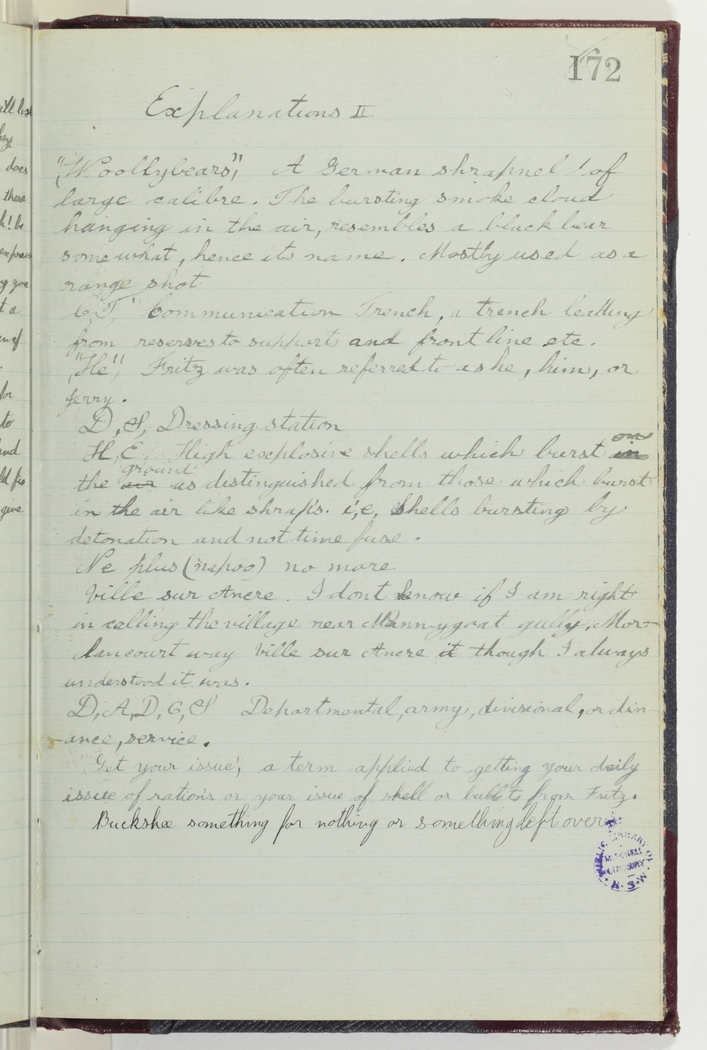 172
Explanations II
"Woollybears", A German shrapnel! of
large calibre. The bursting smoke cloud
hanging in the air, resembles a black bear
somewhat, hence its name. Mostly used as a
range shot
C,T, Communication Trench, a trench leading
from reserves to supports and front line etc.
"He", Fritz was often referred to as he, him, or
Jerry.
D,S, Dressing station
H,E, High explosive shells which burst in on
the air ground as distinguished from those which burst
in the air like shraps. i,e, shells bursting by
detonation and not time fuse.
Ne plus (napoo) no more
Ville sur Ancre. I dont know if I am right
in calling the village near Minnygoat gully, Mor-
lancourt way Ville sur Ancre it though I always
understood it was.
D,A,D,O,S Departmental, army, divisional, ordin
-ance, service.
"Get your issue', a term applied to getting your daily
issue of rations or your issue of shell or bullet from Fritz.
Buckshee something for nothing or something left over.
PUBLIC LIBRARY OF
MITCHELL
LIBRARY
N.S.W.
ill
does
there
to
and
give